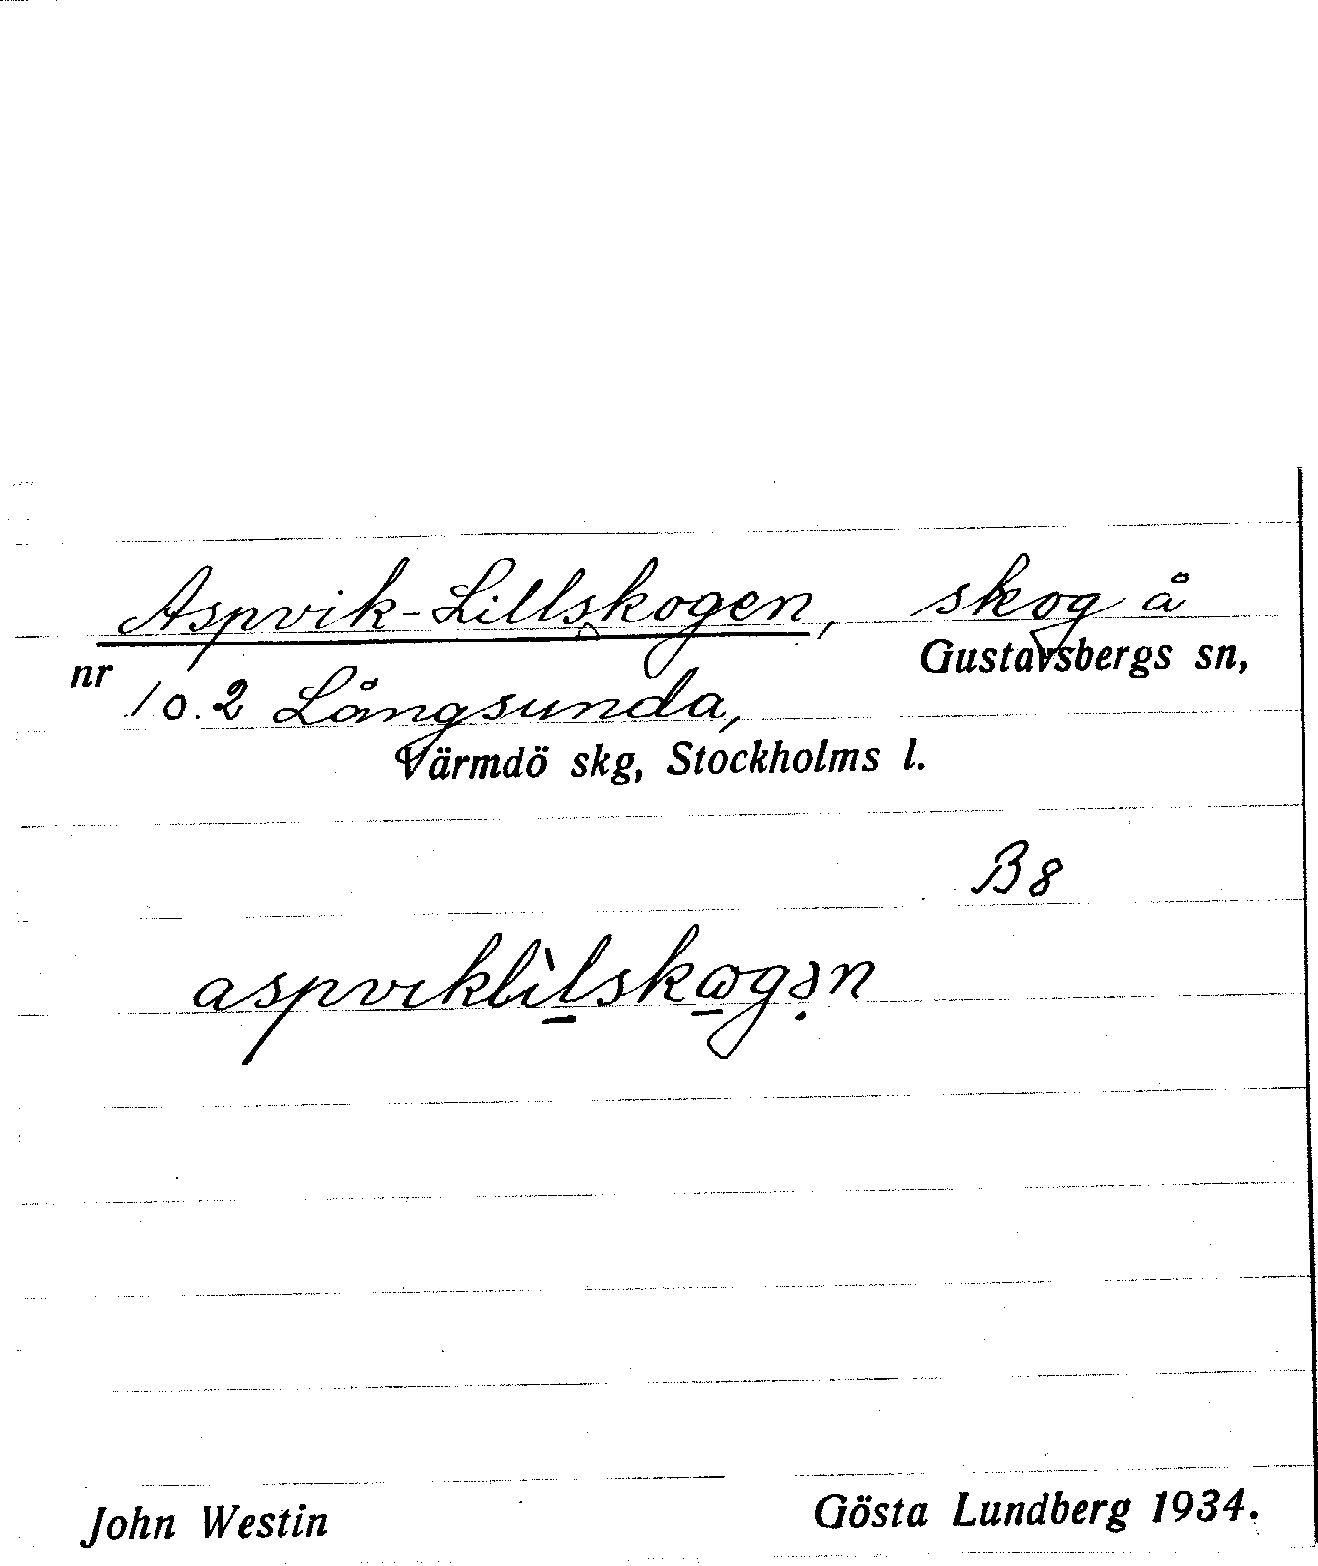 Aspvik-Lillskogen, skog å
Gustavsbergs sn,
nr 10.2 Långsunda,
Värmdö skg, Stockholms l.
B8
aspviklìlskωgən
John Westin Gösta Lundberg 1934.